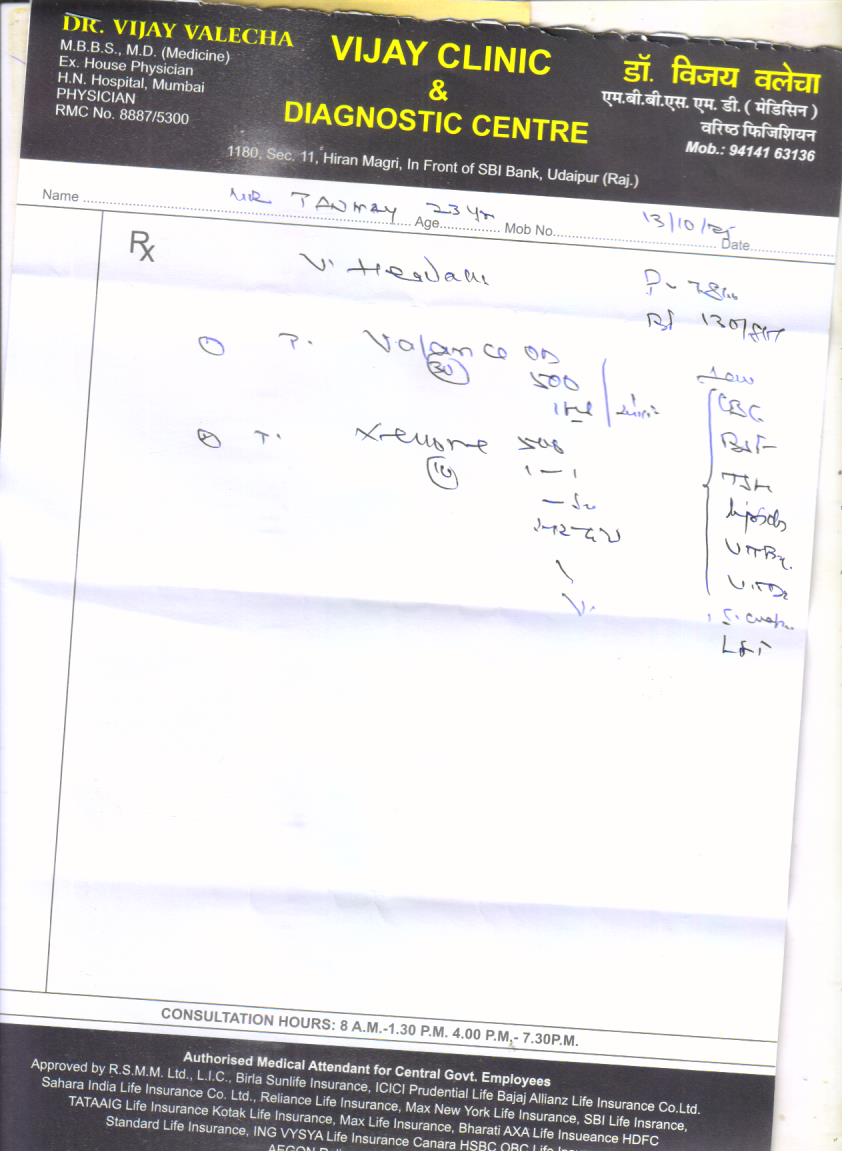 DR. VIJAY VALECHA
M.B.B.S., M.D. (Medicine)
Ex. House Physician
H.N. Hospital, Mumbai
PHYSICIAN
RMC No. 8887/5300
VIJAY CLINIC
&
DIAGNOSTIC CENTRE
1180, Sec. 11, Hiran Magri, In Front of SBI Bank, Udaipur (Raj.)
डॉ. विजय वलेचा
एम.बी.बी.एस. एम. डी. ( मेडिसिन )
वरिष्ठ फिजिशियन
Mob.: 94141 63136
Name MR TANMAY Age 23 Yr Mob No. Date 13/10/
Rx
P-
130/
① T. Valance OD
(30) 500
② T. 500
(10) 1-1
CBC
TSH
Lipids
Vit B12
Vit D3
LFT
CONSULTATION HOURS: 8 A.M.-1.30 P.M. 4.00 P.M,- 7.30P.M.
Authorised Medical Attendant for Central Govt. Employees
Approved by R.S.M.M. Ltd., L.I.C., Birla Sunlife Insurance, ICICI Prudential Life Bajaj Allianz Life Insurance Co.Ltd.
Sahara India Life Insurance Co. Ltd., Reliance Life Insurance, Max New York Life Insurance, SBI Life Insrance,
TATAAIG Life Insurance Kotak Life Insurance, Max Life Insurance, Bharati AXA Life Insueance HDFC
Standard Life Insurance, ING VYSYA Life Insurance Canara HSBC OBC Life